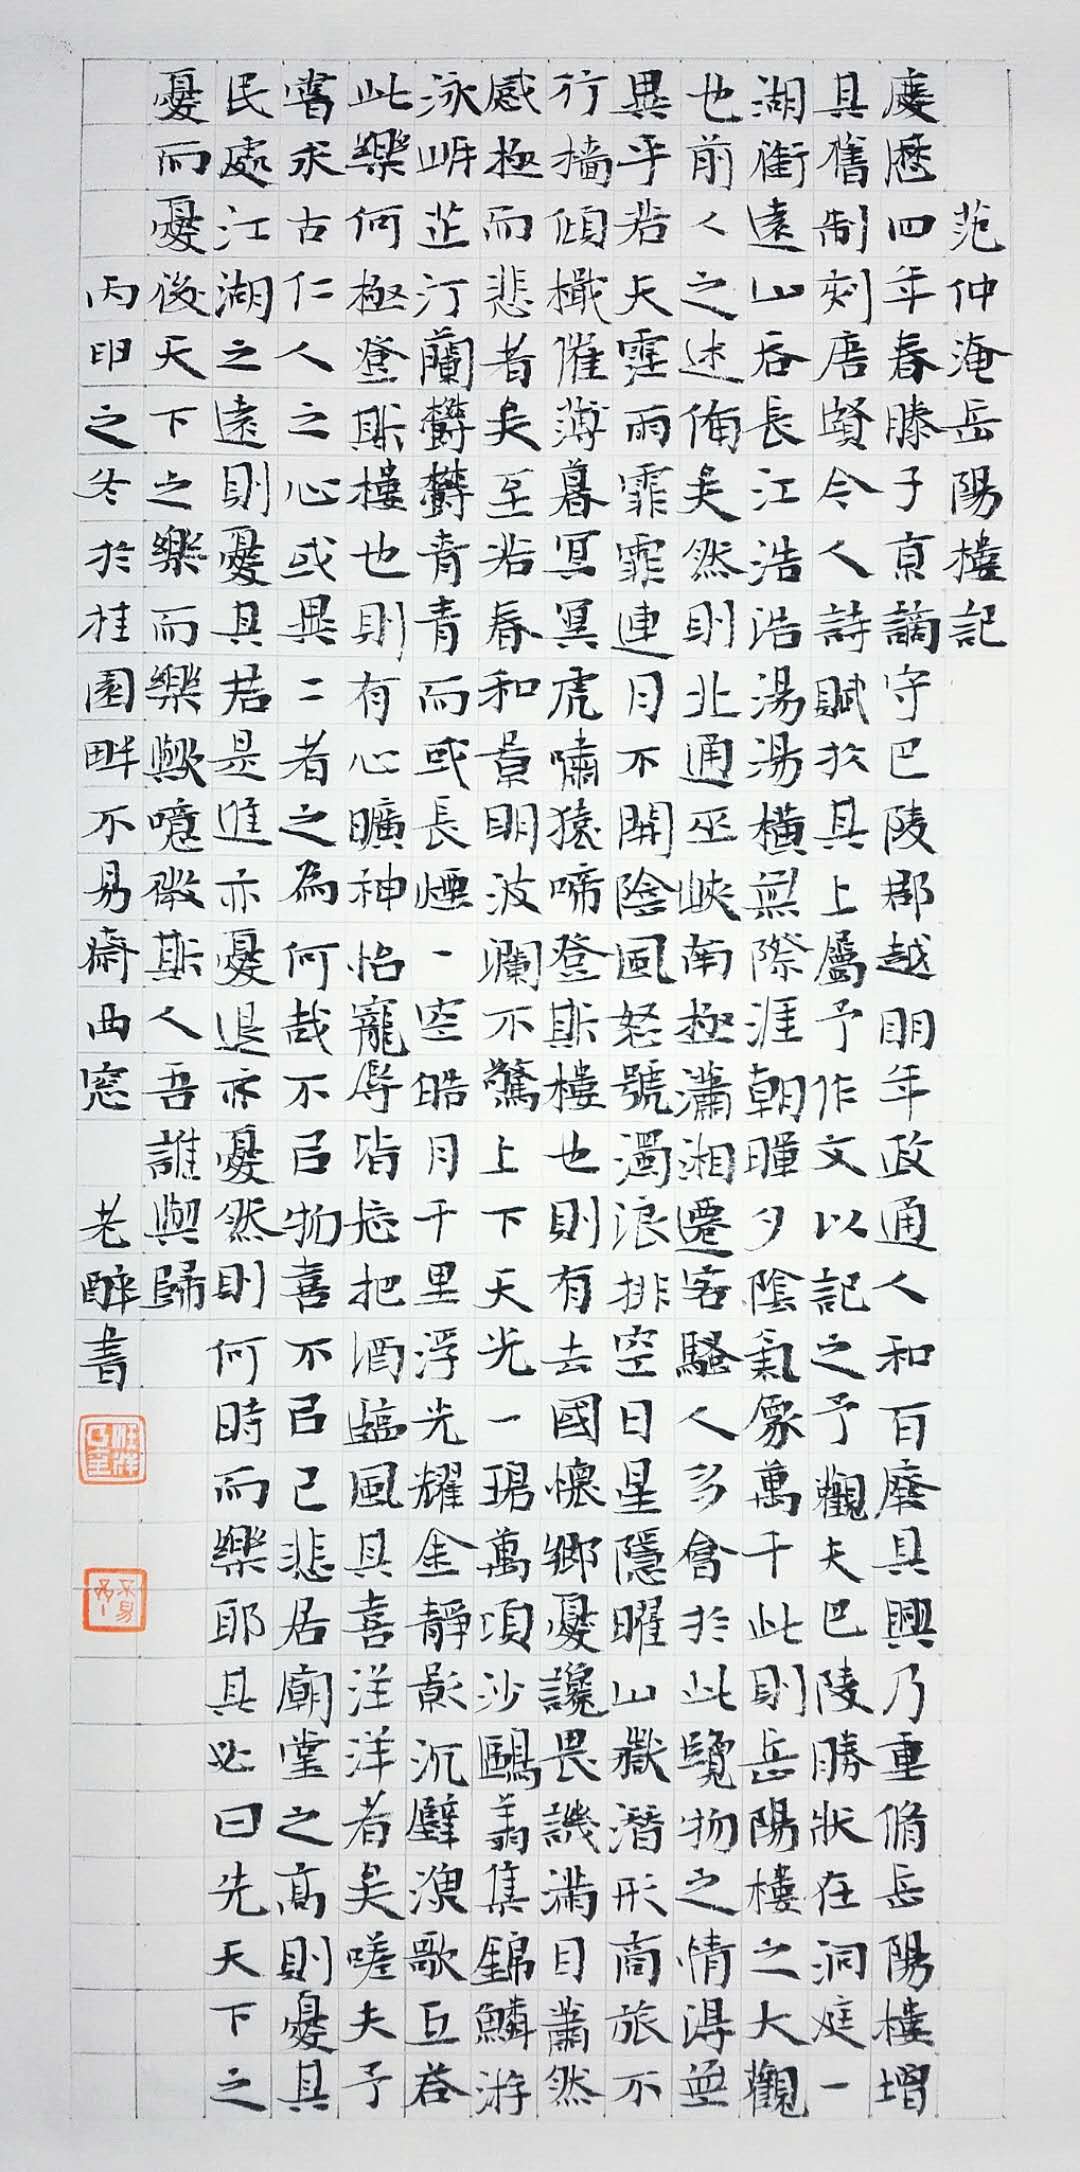 范仲淹岳陽樓記
慶歷四年春滕子京謫守巴陵郡越明年政通人和百廢具興乃重脩岳陽樓增
其舊制刻唐賢今人詩賦於其上屬予作文以記之予觀夫巴陵勝狀在洞庭一
湖銜遠山吞長江浩浩湯湯橫無際涯朝暉夕陰氣象萬千此則岳陽樓之大觀
也前人之述備矣然則北通巫峽南極瀟湘遷客騷人多會於此覽物之情得無
異乎若夫霪雨霏霏連月不開陰風怒號濁浪排空日星隱曜山嶽潛形商旅不
行檣傾檝催薄暮冥冥虎嘯猿啼登斯樓也則有去國懷鄉憂讒畏譏滿目蕭然
感極而悲者矣至若春和景明波瀾不驚上下天光一碧萬頃沙鷗翔集錦鱗游
泳岸芷汀蘭鬱鬱青青而或長煙一空皓月千里浮光耀金靜影沉璧漁歌互答
此樂何極登斯樓也則有心曠神怡寵辱皆忘把酒臨風其喜洋洋者矣嗟夫予
嘗求古仁人之心或異二者之為何哉不以物喜不以己悲居廟堂之高則憂其
民處江湖之遠則憂其君是進亦憂退亦憂然則何時而樂耶其必曰先天下之
憂而憂後天下之樂而樂歟噫微斯人吾誰與歸
丙申之冬於桂園畔不易齋西窓 老醉書